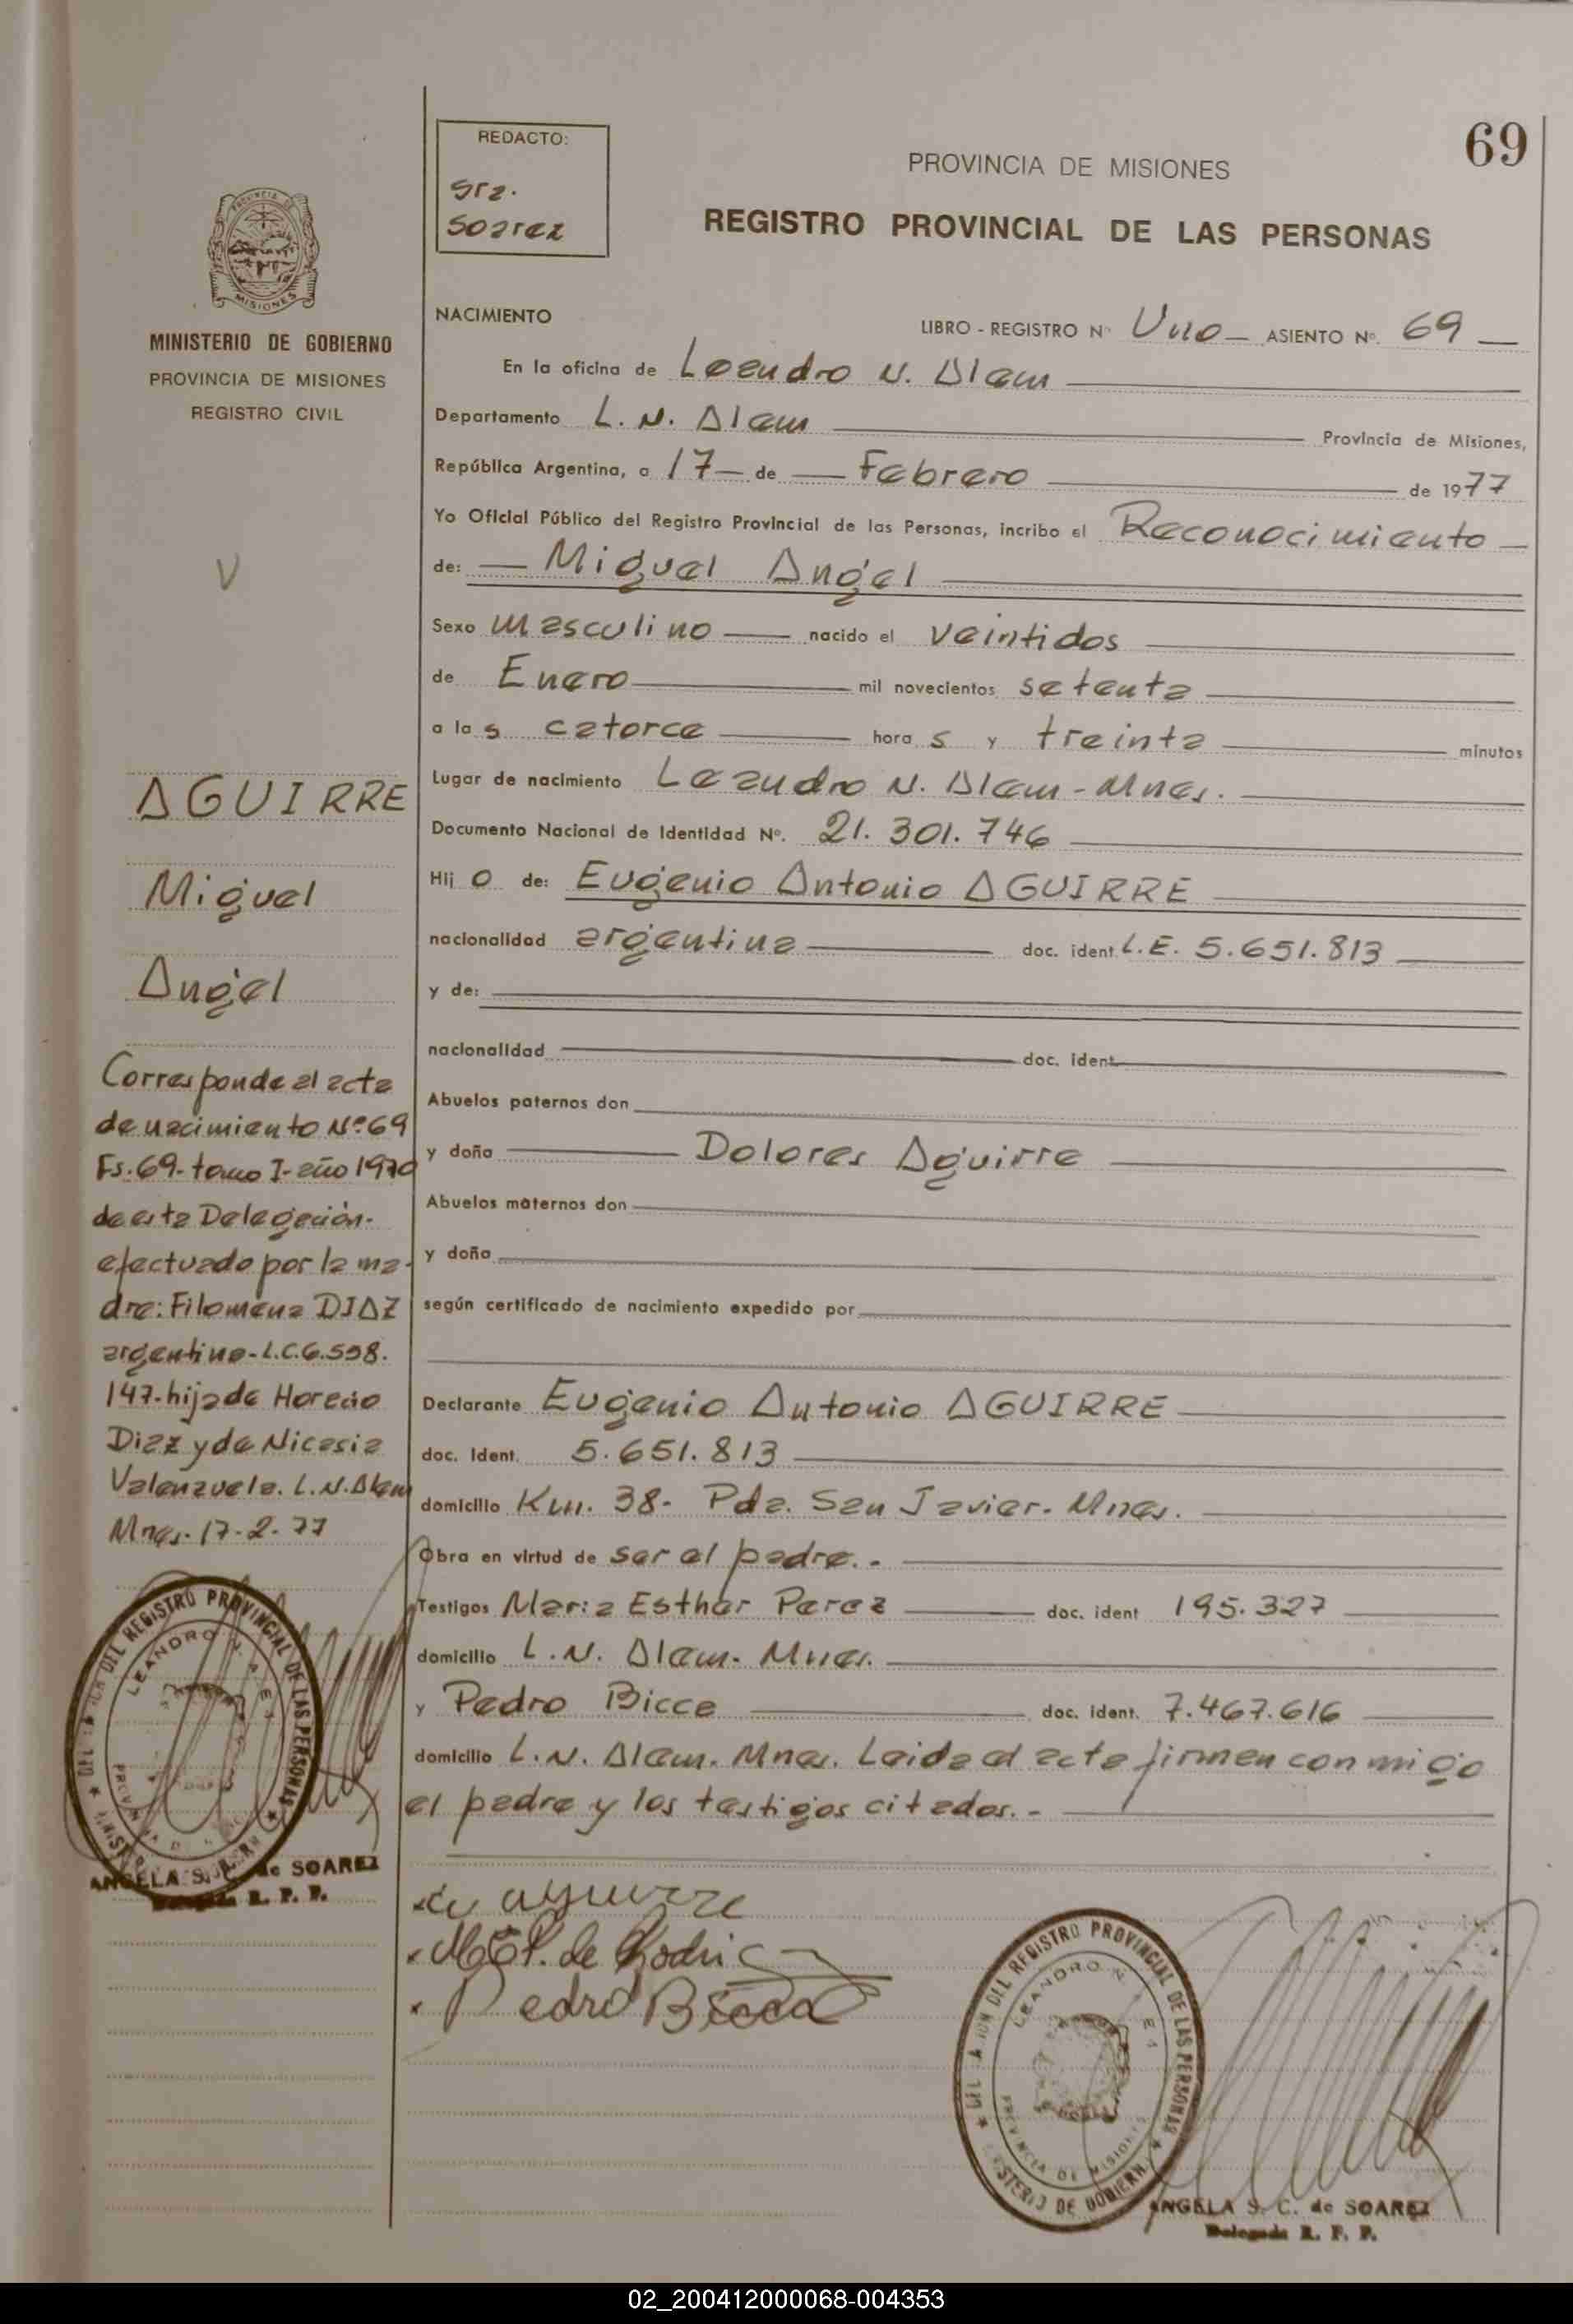 69
REDACTO:
Sra.
Soarez
PROVINCIA DE MISIONES
REGISTRO PROVINCIAL DE LAS PERSONAS
MINISTERIO DE GOBIERNO
PROVINCIA DE MISIONES
REGISTRO CIVIL
V
AGUIRRE
Miguel
Angel
Corresponde al acta
de nacimiento Nº 69
Fs. 69- tomo I- año 1970
de esta Delegación-
efectuado por la ma-
dre: Filomena DIAZ
argentina- L.C. 6.558.
147- hija de Horacio
Diaz y de Nicasia
Valenzuela. L.N. Alem
Mnes- 17-2-77
NACIMIENTO
LIBRO - REGISTRO Nº Uno - ASIENTO Nº. 69
En la oficina de Leandro N. Alem
Departamento L. N. Alem Provincia de Misiones,
República Argentina, a 17 de Febrero de 1977
Yo Oficial Público del Registro Provincial de las Personas, incribo el Reconocimiento
de: Miguel Angel
Sexo masculino nacido el veintidos
de Enero mil novecientos setenta
a las catorce horas y treinta minutos
Lugar de nacimiento Leandro N. Alem - Mnes.
Documento Nacional de Identidad Nº. 21.301.746
Hijo de: Eugenio Antonio AGUIRRE
nacionalidad argentina doc. ident. L.E. 5.651.813
y de:
nacionalidad doc. ident.
Abuelos paternos don
y doña Dolores Aguirre
Abuelos maternos don
y doña
según certificado de nacimiento expedido por
Declarante Eugenio Antonio AGUIRRE
doc. Ident. 5.651.813
domicilio Km. 38- Pda. San Javier- Mnes.
Obra en virtud de ser el padre.-
Testigos Maria Esther Perez doc. ident 195.327
domicilio L.N. Alem- Mnes.
y Pedro Bicca doc. ident. 7.467.616
domicilio L.N. Alem- Mnes. Leida el acta firman conmigo
el padre y los testigos citados.-
aguirre
M E P. de Rodri
Pedro Bicca
DEL REGISTRO PROVINCIAL DE LAS PERSONAS
LEANDRO N.
ANGELA S. C. de SOAREZ
Delegada R. P. P.
DEL REGISTRO PROVINCIAL DE LAS PERSONAS
LEANDRO N.
PROVINCIA DE MISIONES
ANGELA S. C. de SOAREZ
Delegada R. P. P.
02_200412000068-004353